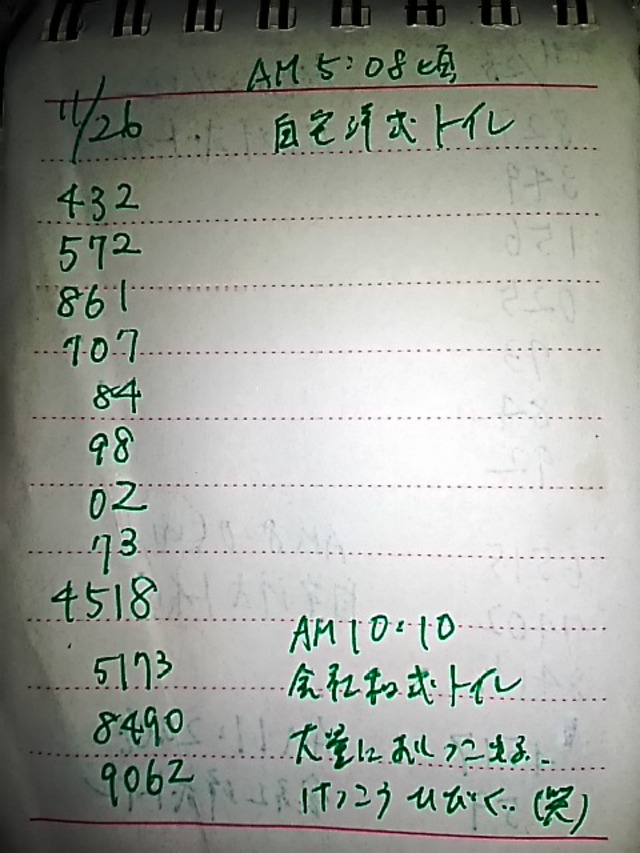 AM 5:08頃
11/26
自宅洋式トイレ
432
572
861
707
84
98
02
73
4518
AM10:10
5173
会社和式トイレ
8490
大量におしっこする..
9062
けっこうひびく..(笑)